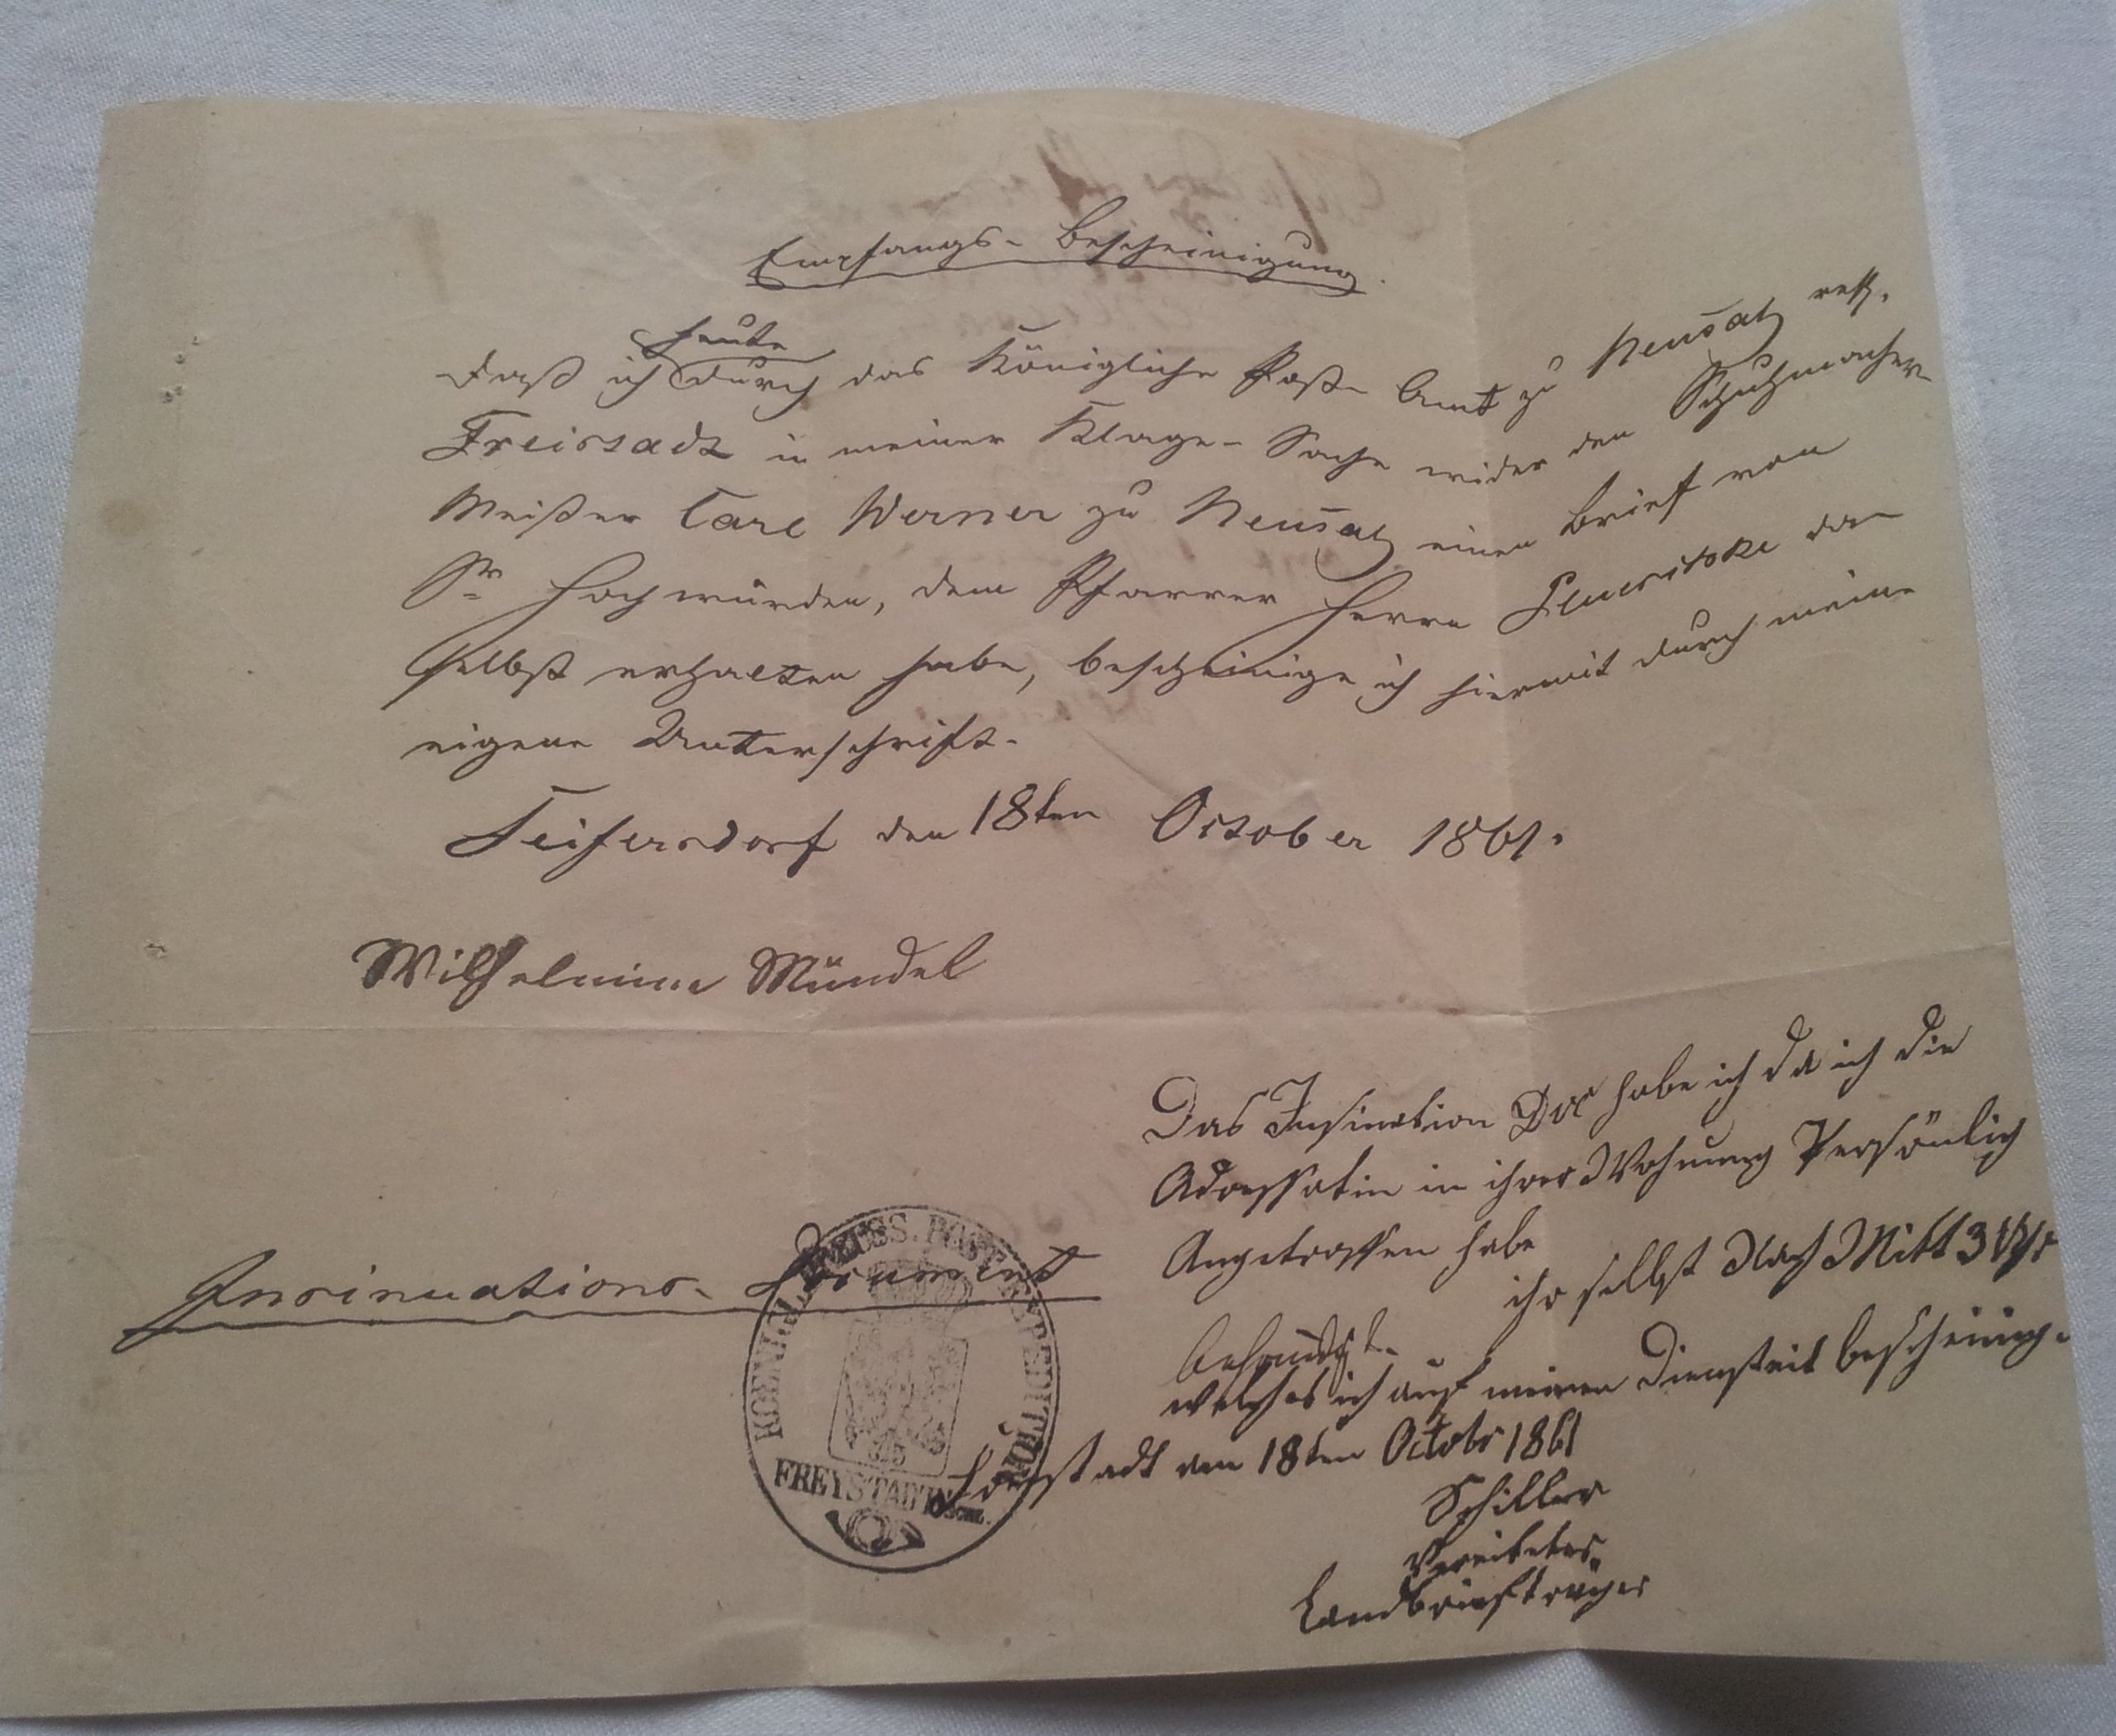 Empfangs-Bescheinigung.
heute
Daß ich durch das Königliche Post-Amt zu Neusalz resp.
Freistadt in meiner Klage-Sache wider den Schuhmacher
Meister Carl Werner zu Neusalz einen Brief von
Sr Hochwürden, dem Pfarrer Herrn da-
selbst erhalten habe, bescheinige ich hiermit durch meine
eigene Unterschrift.
Seifersdorf den 18ten October 1861.
Wilhelmine Mündel
Das Insination Doc habe ich da ich die
Adressatin in ihrer Wohnung Persönlich
Angetroffen habe
ihr selbst Nach Mitt 3 Uhr
behändigt.
welches ich auf meinen Diensteid bescheinige.
Insinuations-Document
KOENIGL. PREUSS. POST-EXPEDITION
FREYSTADT
Freystadt den 18ten Octobr 1861
Schiller
Vereideter
Landbriefträger